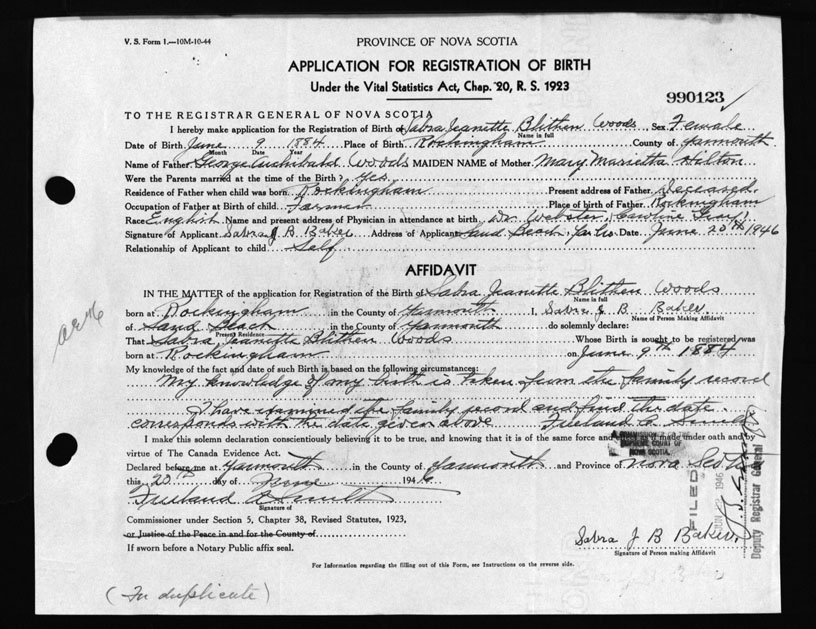 V. S. Form 1.—10M-10-44
PROVINCE OF NOVA SCOTIA
APPLICATION FOR REGISTRATION OF BIRTH
Under the Vital Statistics Act, Chap. 20, R. S. 1923
990123
TO THE REGISTRAR GENERAL OF NOVA SCOTIA
I hereby make application for the Registration of Birth of Sabra Jeanette Blithen Woods Sex Female
Name in full
Date of Birth June 9 1884 Place of Birth Rockingham County of Yarmouth
Month Date Year
Name of Father George Archibald Woods MAIDEN NAME of Mother Mary Marietta Hilton
Were the Parents married at the time of the Birth? Yes
Residence of Father when child was born Rockingham Present address of Father Deceased
Occupation of Father at Birth of child Farmer Place of birth of Father Rockingham
Race English Name and present address of Physician in attendance at birth Dr. Webster, Caroline Gray
Signature of Applicant Sabra J B Baker Address of Applicant Sand Beach, Yar Co. Date June 20th 1946
Relationship of Applicant to child Self
AFFIDAVIT
IN THE MATTER of the application for Registration of the Birth of Sabra Jeanette Blithen Woods
Name in full
born at Rockingham in the County of Yarmouth I, Sabra J B Baker
Name of Person Making Affidavit
of Sand Beach in the County of Yarmouth do solemnly declare:
Present Residence
That Sabra Jeanette Blithen Woods Whose Birth is sought to be registered was
born at Rockingham on June 9th 1884
My knowledge of the fact and date of such Birth is based on the following circumstances:
My knowledge of my birth is taken from the family record
I have examined the family record and find the date
corresponds with the date given above Freeland A Smith
I make this solemn declaration conscientiously believing it to be true, and knowing that it is of the same force and effect as if made under oath and by
A COMMISSIONER
SUPREME COURT OF
NOVA SCOTIA
virtue of The Canada Evidence Act.
Declared before me at Yarmouth in the County of Yarmouth and Province of Nova Scotia
this 20th day of June 1946
Freeland A Smith
Signature of
Commissioner under Section 5, Chapter 38, Revised Statutes, 1923,
or Justice of the Peace in and for the County of
If sworn before a Notary Public affix seal.
Sabra J B Baker
Signature of Person making Affidavit
FILED
1946
Deputy Registrar General
For Information regarding the filling out of this Form, see Instructions on the reverse side.
(In duplicate)